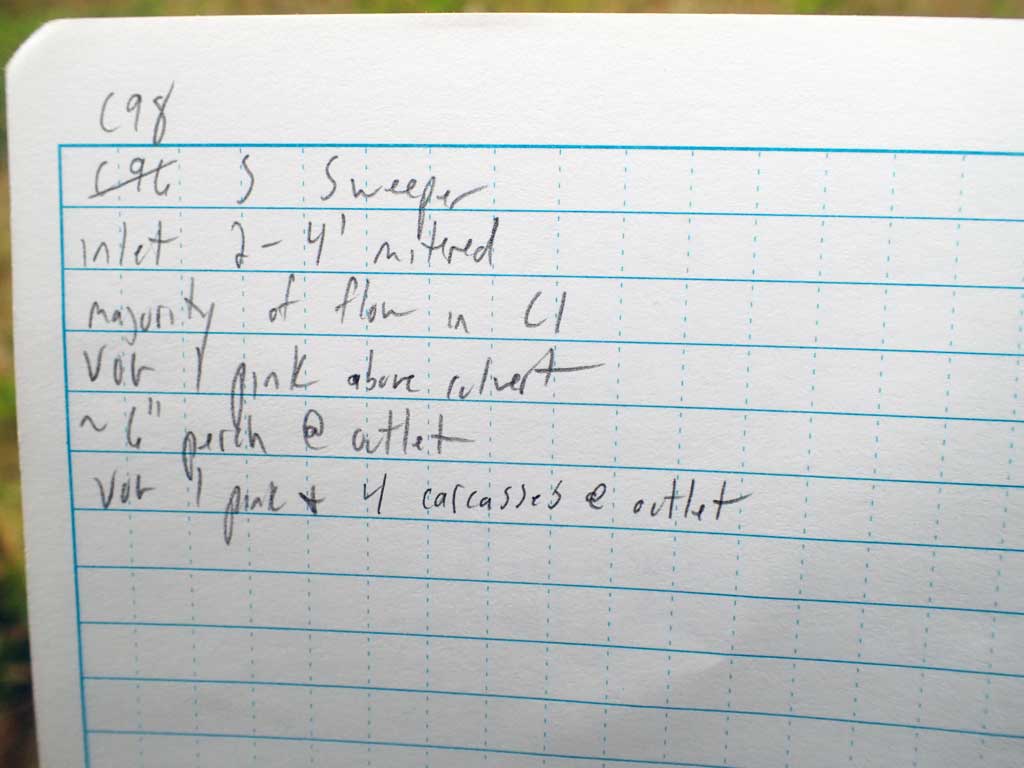 C98
C96 S Sweeper
inlet 2-4' mitered
majority of flow in C1
VOB 1 pink above culvert
~6" perch @ outlet
VOB 1 pink + 4 carcasses @ outlet